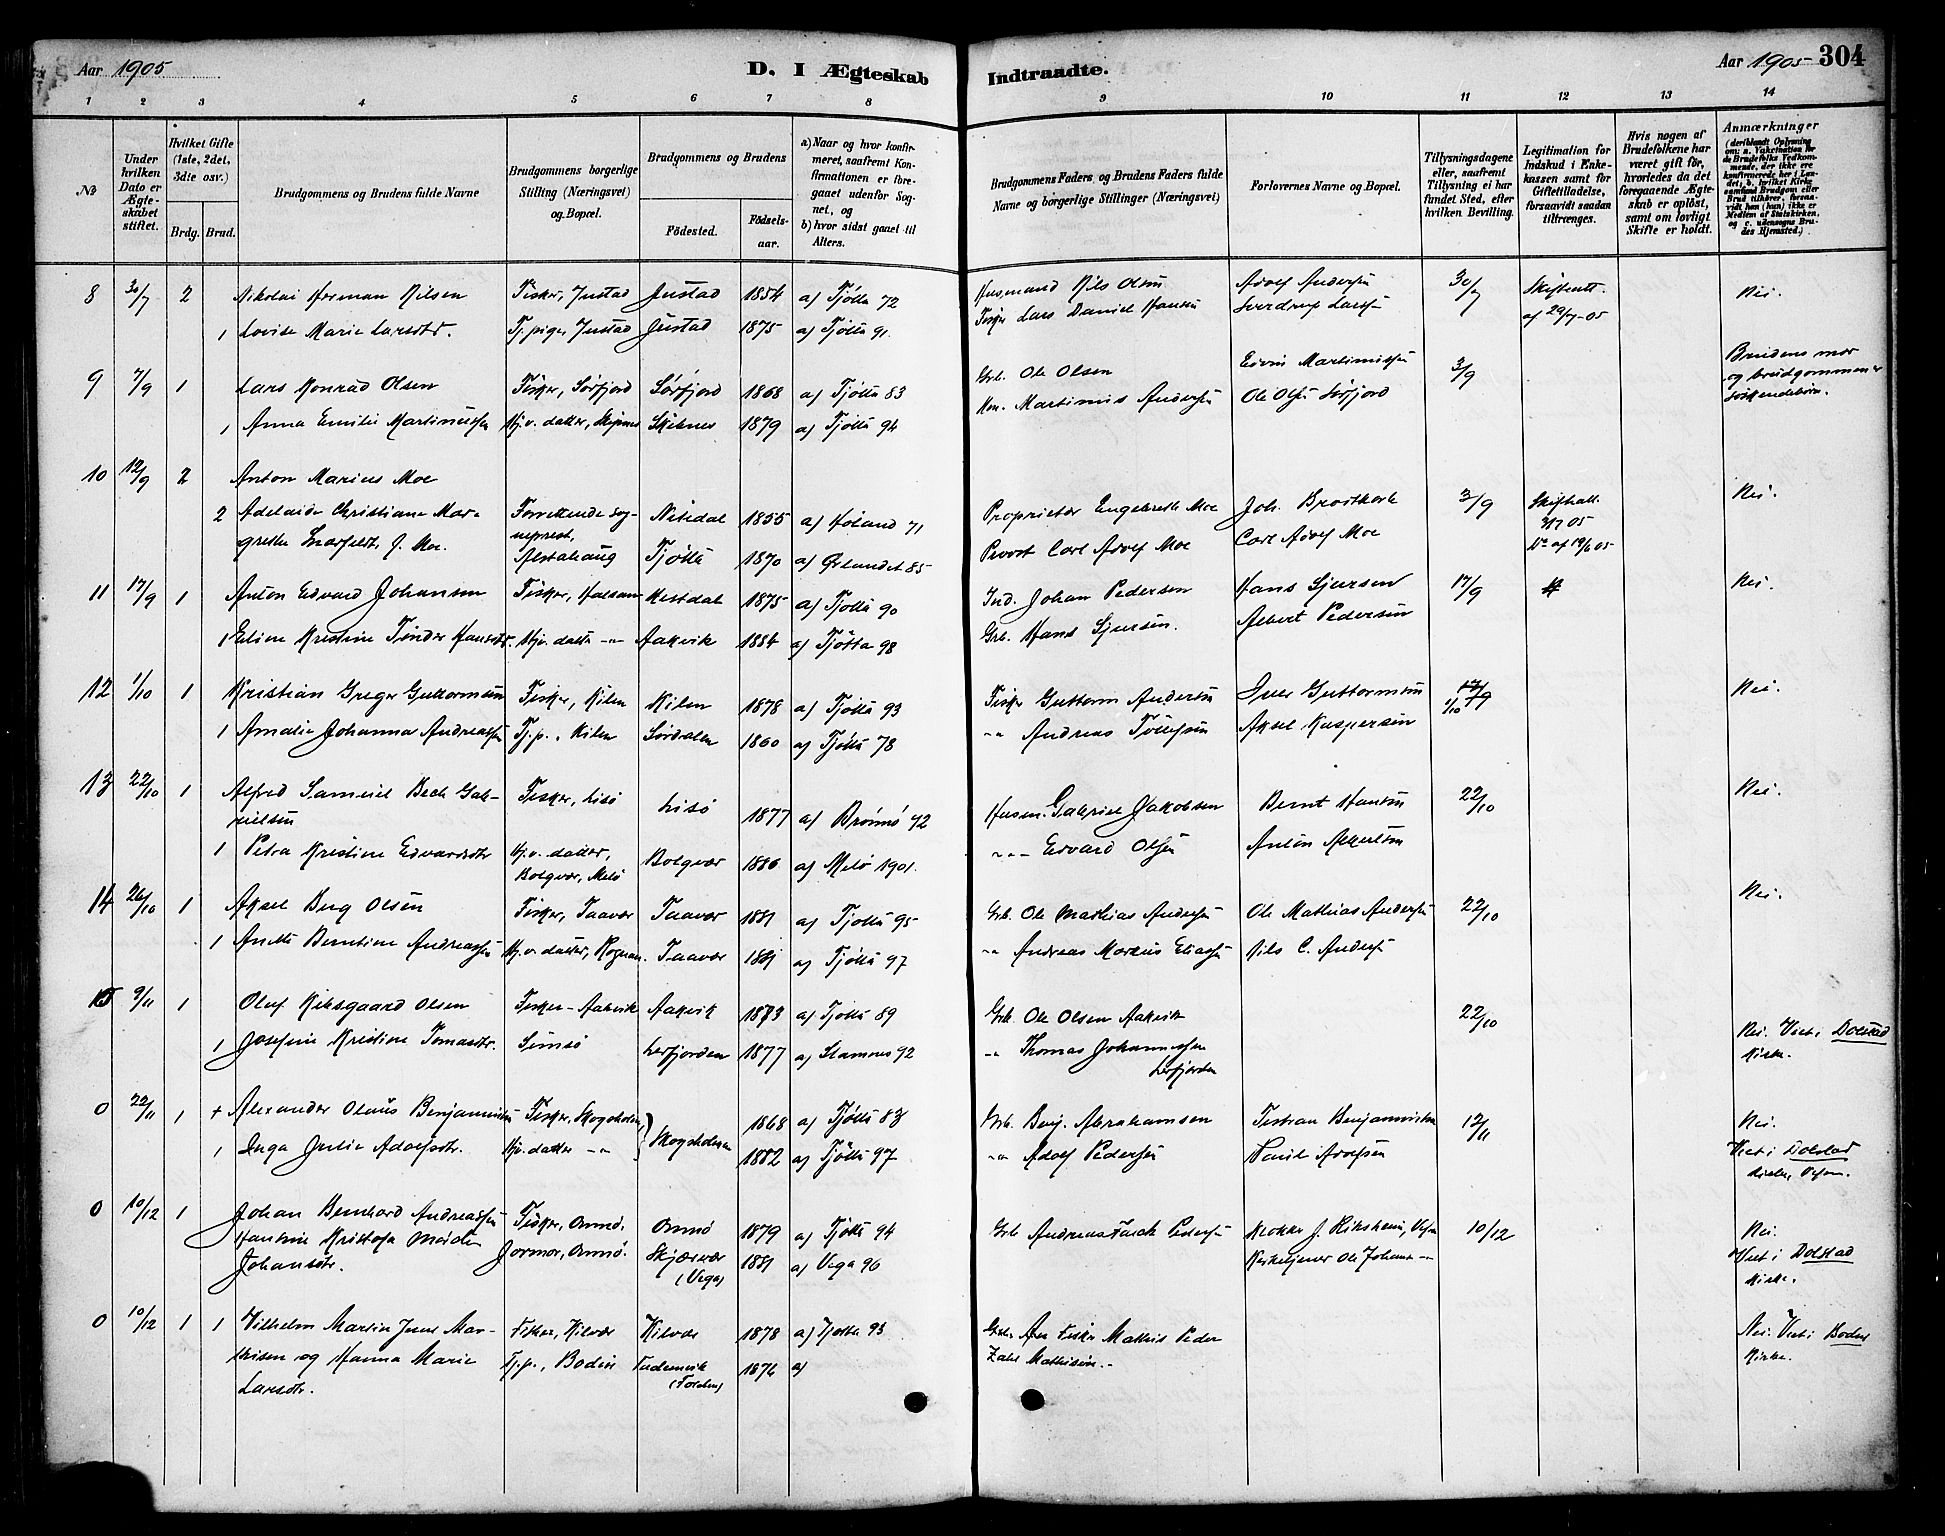 Aar 1905
D. I Ægteskab
Indtraadte.
Aar 1905 304
1 2 3 4 5 6 7 8 9 10 11 12 13 14
No
Under hvilken Dato er Ægteskabet stiftet.
Hvilket Gifte (1ste, 2det, 3die osv.)
Brdg. Brud.
Brudgommens og Brudens fulde Navne
Brudgommens borgerlige Stilling (Næringsvei) og Bopæl.
Brudgommens og Brudens
Födested.
Födsels-aar.
a) Naar og hvor konfirmeret, saafremt Konfirmationen er foregaaet udenfor Sognet, og
b) hvor sidst gaaet til Alters.
Brudgommens Faders og Brudens Faders fulde Navne og borgerlige Stillinger (Næringsvei)
Forlovernes Navne og Bopæl.
Tillysningsdagene eller, saafremt Tillysning ei har fundet Sted, efter hvilken Bevilling.
Legitimation for Indskud i Enkekassen samt for Giftetilladelse, forsaavidt saadan tiltrænges.
Hvis nogen af Brudefolkene har været gift før, hvorledes da det foregaaende Ægteskab er opløst, samt om lovligt Skifte er holdt.
Anmærkninger
8 30/7 2 Nikolai Herman Nilsen Fisker, Justad Justad 1854 a) Tjøtta 72 Husmand Nils Olsen Adolf Andersen 30/7 Skifteatt. Nei.
1 Lovise Marie Larsdtr. Tj. pige, Justad Justad 1875 a) Tjøtta 91. Fisker Lars Daniel Hansen Sverdrup Larsen af 29/7-05
9 7/9 1 Lars Konrad Olsen Fisker, Sørfjord Sørfjord 1868 a) Tjøtta 83 Grb. Ole Olsen Edvin Martinussen 3/9 Brudens mor
og brudgommen er
søskendebørn.
1 Anna Emilie Martinussen Hj.v. datter, 1879 a) Tjøtta 94 Martinus Andersen Ole Olsen Sørfjord
10 12/9 2 Anton Marius Moe
2 Adelaide Christiane Mar- Forrettende sog- Nitedal 1855 a) Høland 71 Proprietær Engebreth Moe Joh. Brodtkorb 3/9 Nei.
grethe f. Moe. neprest, Alstahaug Tjøtta 1870 a) Ørlandet 85 Provst Carl Adolf Moe Carl Adolf Moe
11 17/9 1 Anton Edvard Johansen Fisker, 1875 a) Tjøtta 90 Ind. Johan Pedersen Hans Sjursen 17/9 Nei.
1 Eline Kristine Tønder Hansdtr. Hjv. datter -"- Aakvik 1884 a) Tjøtta 98 Grb. Hans Sjursen. Albert Pedersen
12 1/10 1 Kristian Greger Guttormsen Fisker, Kilen Kilen 1878 a) Tjøtta 93 Fisker Guttorm Andersen Iver Guttormsen 1/10 Nei.
1 Amalie Johanna Andreassen Tj.p., Kilen Sørdalen 1860 a) Tjøtta 78 -"- Andreas Tollefsen Aksel Kaspersen
13 22/10 1 Alfred Samuel Bech Gab- Fisker, Lisø Lisø 1877 a) Brønnø 92 Husm. Gabriel Jakobsen Bernt Hansen 22/10 Nei.
rielsen
1 Petra Kristine Edvardsdtr Hj.v. datter, Bolgvær, Melø Bolgvær 1886 a) Melø 1901. -"- Edvard Olsen Anton
14 26/10 1 Aksel Berg Olsen Fisker, Taavær Taavær 1881 a) Tjøtta 95 Grb. Ole Mathias Andersen Ole Mathias Andersen 22/10 Nei.
1 Anette Berntine Andreassen Hj.v. datter, Rognan. Taavær 1881 a) Tjøtta 97 -"- Andreas Markus Eliassen Nils C. Andersen
15 9/11 1 Oluf Kiksgaard Olsen Fisker - Aakvik Aakvik 1873 a) Tjøtta 89 Grb. Ole Olsen Aakvik 22/10
1 Josefine Kristine Tomasdtr. Simsø Leirfjorden 1877 a) Stamnes 92 " Thomas Johannessen Leirfjorden Nei. Viet i Dolstad
Kirke.
0 22/11 1 + Alexander Olaus Benjaminsen Fisker, Skogsholmen Skogsholmen 1868 a) Tjøtta 83 Grb. Benj. Abrahamsen Kristian Benjaminsen 12/11 Nei.
1 Inga Julie Adolfsdtr. Hjv. datter -"- 1882 a) Tjøtta 97 -"- Adolf Pedersen Paul Adolfsen Viet i Dolstad
Kirke, Vefsn.
0 10/12 1 Johan Bernhard Andreassen Fisker, Ommø. Omnø 1879 a) Tjøtta 94 Grb Andreas Falch Pedersen Klokker J. Kiksheim, Vefsn 10/12 Nei.
Hansine Kristofa Johansdtr. Jormor, Omnø. Skjærvær (Vega) 1881 a) Vega 96 Kirketjener Ole Johans. -"- Viet i Dolstad
Kirke.
0 10/12 1 1 Vilhelm Martin Juul Mat- Fisker, Hilvær Hilvær 1878 a) Tjøtta 93 Fisker Mathis Peder Nei. Viet i Bodø
hisen og Hanna Marie Tj.p., Bodin (Folden) 1874 a) Zahl Mathisen.- Kirke.
Larsdtr.